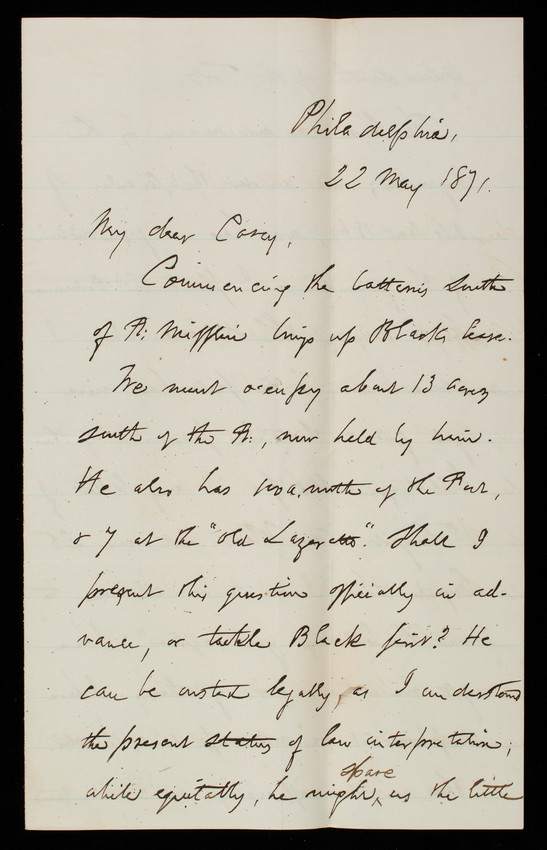 Philadelphia,
22 May 1871.
My dear Casey,
Commencing the batteries south
of Ft. Mifflin brings up Black's lease.
We must occupy about 13 acres
south of the Ft., now held by him.
He also has 100 a. north of the Fort,
& 7 at the "old Lazaretto". Shall I
present this question officially in ad-
vance, or tackle Black first? He
can be ousted legally, as I understand
the present status of law interpretation;
while equitably, he might spare us the little